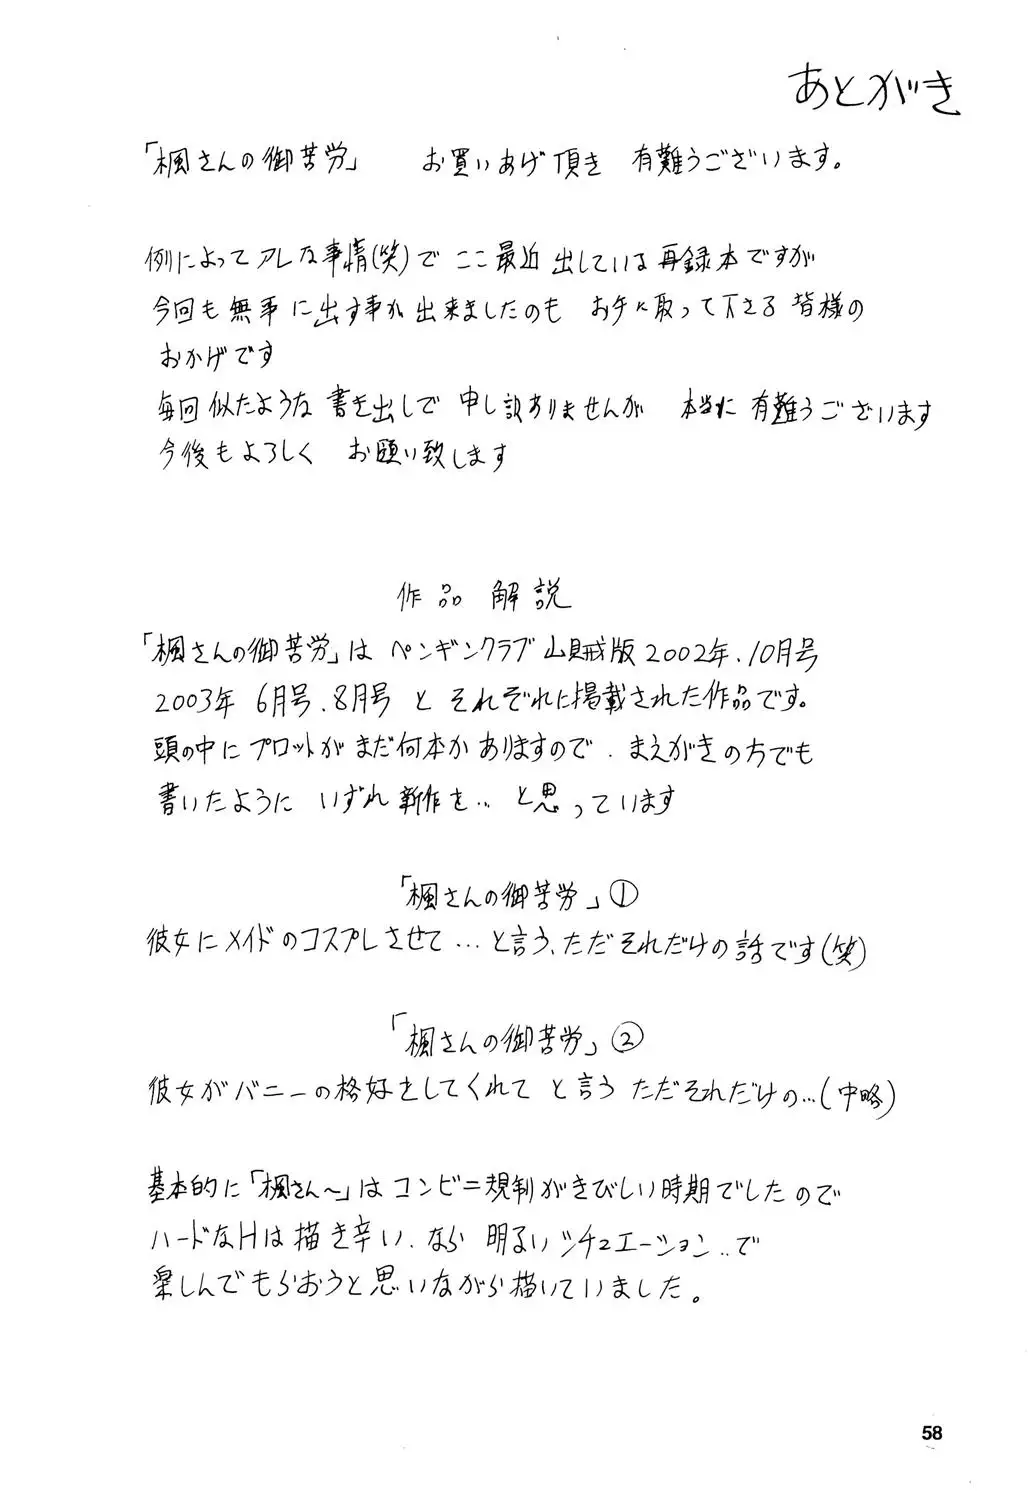 あとがき
「楓さんの御苦労」 お買いあげ頂き 有難うございます。
例によってアレな事情(笑)で ここ最近 出している再録本ですが
今回も無事に出す事が出来ましたのも お手に取って下さる 皆様の
おかげです
毎回似たような書き出しで 申し訳ありませんが 本当に有難うございます
今後もよろしく お願い致します
作品 解説
「楓さんの御苦労」は ペンギンクラブ山賊版2002年.10月号
2003年 6月号.8月号 と それぞれに掲載された作品です。
頭の中に プロットが まだ何本か ありますので.まえがきの方でも
書いたように いずれ新作を… と思っています
「楓さんの御苦労」①
彼女にメイドのコスプレさせて…と言う、ただそれだけの話です(笑)
「楓さんの御苦労」②
彼女がバニーの格好をしてくれて と言う ただそれだけの…(中略)
基本的に「楓さん〜」はコンビニ規制がきびしい時期でしたので
ハードなHは描き辛い.なら 明るいシチュエーション..で
楽しんでもらおうと思いながら描いていました。
58